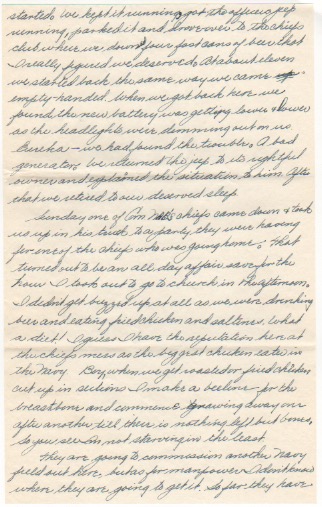 started we kept it running, got the officer's jep
running, parked it and drove over to the chiefs
club where we downed four foot cans of beer that
I really figured we deserved. At about eleven
we started back the same way we came
empty-handed. When we got back here we
found the new battery was getting lower & lower
as the headlights were dimming out on us
Eureka - we had found the trouble. A bad
generator. We returned the jep to its rightful
owner and explained the situation to him. After
that we retired to our deserved sleep.
Sunday one of chiefs came down & took
us up in his truck to a party they were having
for one of the chiefs who was going home. That
turned out to be an all day affair save for the
hour I took out to go to church in the afternoon.
I didn't get buzzed up at all as we were drinking
beer and eating fried chicken and saltines. What
a diet! I guess I have the reputation here at
the chiefs mess as the biggest chicken eater in
the Navy. Boy, when we get roasted or fried chicken
cut up in sections I make a beeline for the
breastbone and commence gnawing away one
after another till there is nothing left but bones,
so you see I'm not starving in the least.
They are going to commission another Navy
field out here, but as for manpower I don't know
where they are going to get it. So far they have